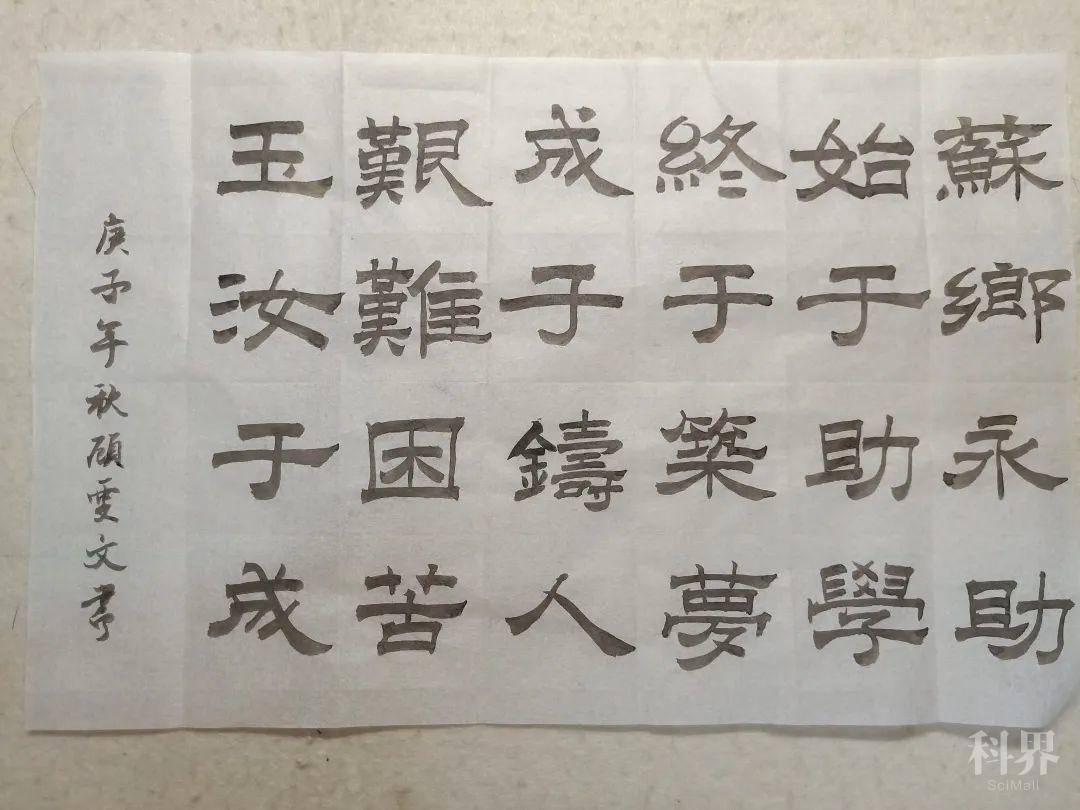 蘇鄉永助
始于助學
終于築夢
成于鑄人
艱難困苦
玉汝于成
庚子年秋顾雯文書
科界
SciMall